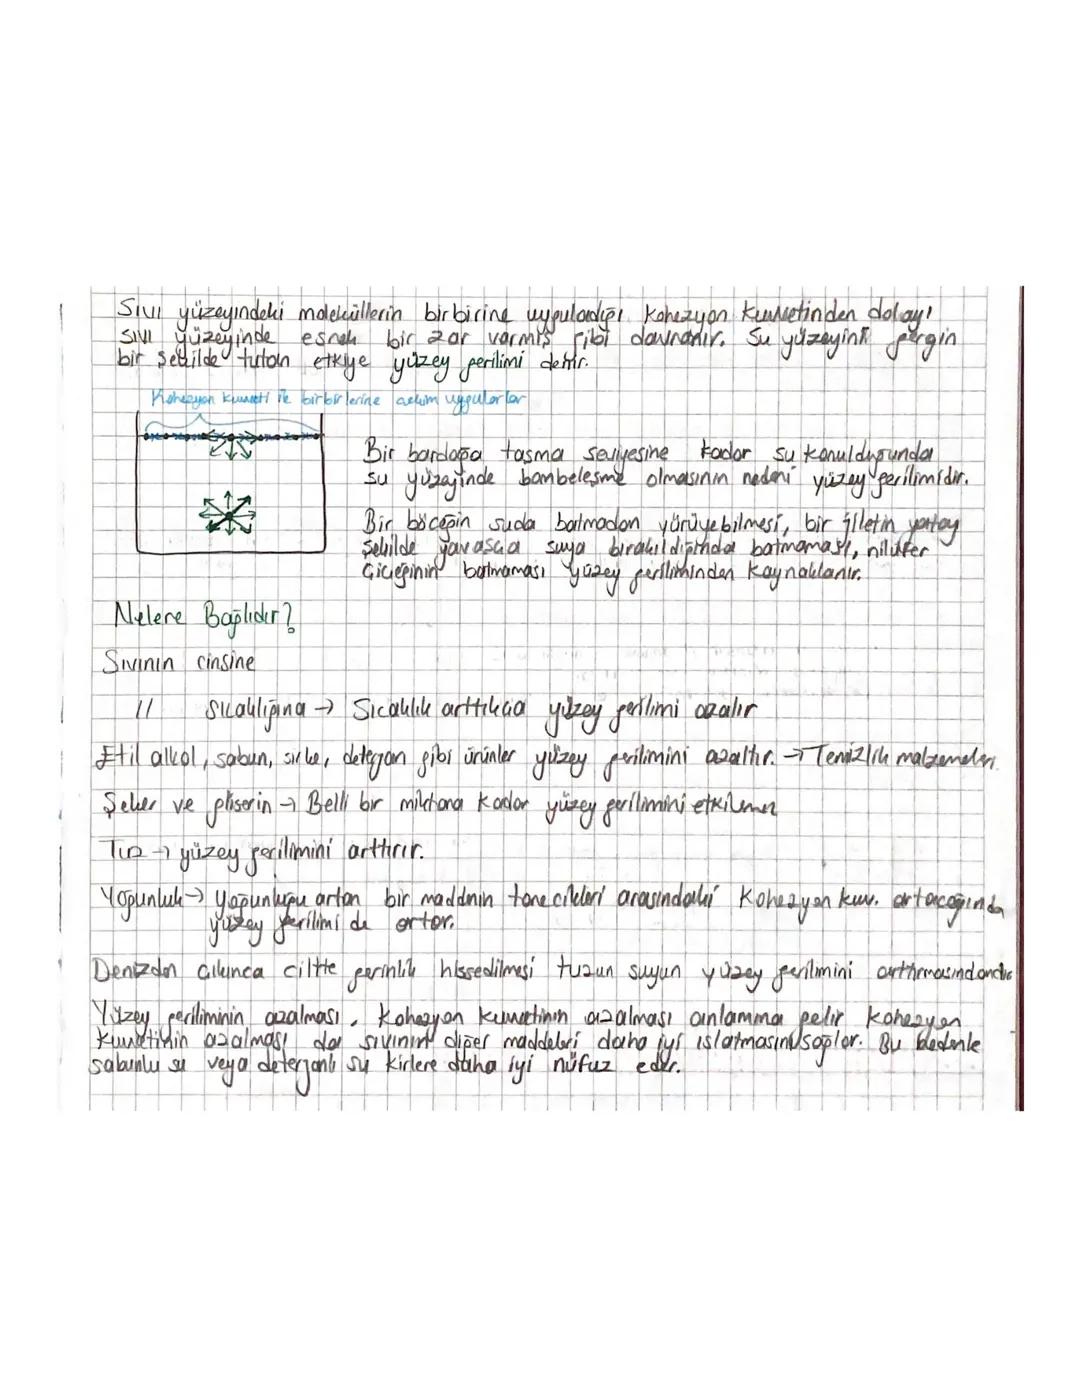 Sıvı yüzeyindeki moleküllerin birbirine uyguladığı kohezyon kuvvetinden dolayı
sıvı yüzeyinde esnek bir zar varmış gibi davranır. Su yüzeyini gergin
bir şekilde tutan etkiye yüzey gerilimi denir.
Kohezyon kuvveti ile birbirlerine çekim uygularlar
Bir bardağa taşma seviyesine kadar su konulduğunda
su yüzeyinde bombeleşme olmasının nedeni yüzey gerilimidir.
Bir böceğin suda batmadan yürüyebilmesi, bir jiletin yatay
şekilde yavaşça suya bırakıldığında batmaması, nilüfer
çiçeğinin batmaması yüzey geriliminden kaynaklanır.
Nelere Bağlıdır?
Sıvının cinsine
// Sıcaklığına → Sıcaklık arttıkça yüzey gerilimi azalır
Etil alkol, sabun, sirke, deterjan gibi ürünler yüzey gerilimini azaltır. → Temizlik malzemeleri
Şeker ve gliserin → Belli bir miktara kadar yüzey gerilimini etkilemez
Tuz → yüzey gerilimini arttırır.
Yoğunluk → Yoğunluğu artan bir maddnin tanecikleri arasındaki kohezyon kuv. artacağında
yüzey gerilimi de artar.
Denizden çıkınca ciltte gerinlik hissedilmesi tuzun suyun yüzey gerilimini arttırmasındandır
Yüzey geriliminin azalması, kohezyon kuvvetinin azalması anlamına gelir kohezyon
kuvvetinin azalması da sıvının diğer maddeleri daha iyi ıslatmasını sağlar. Bu nedenle
sabunlu su veya deterjanlı su kirlere daha iyi nüfuz eder.